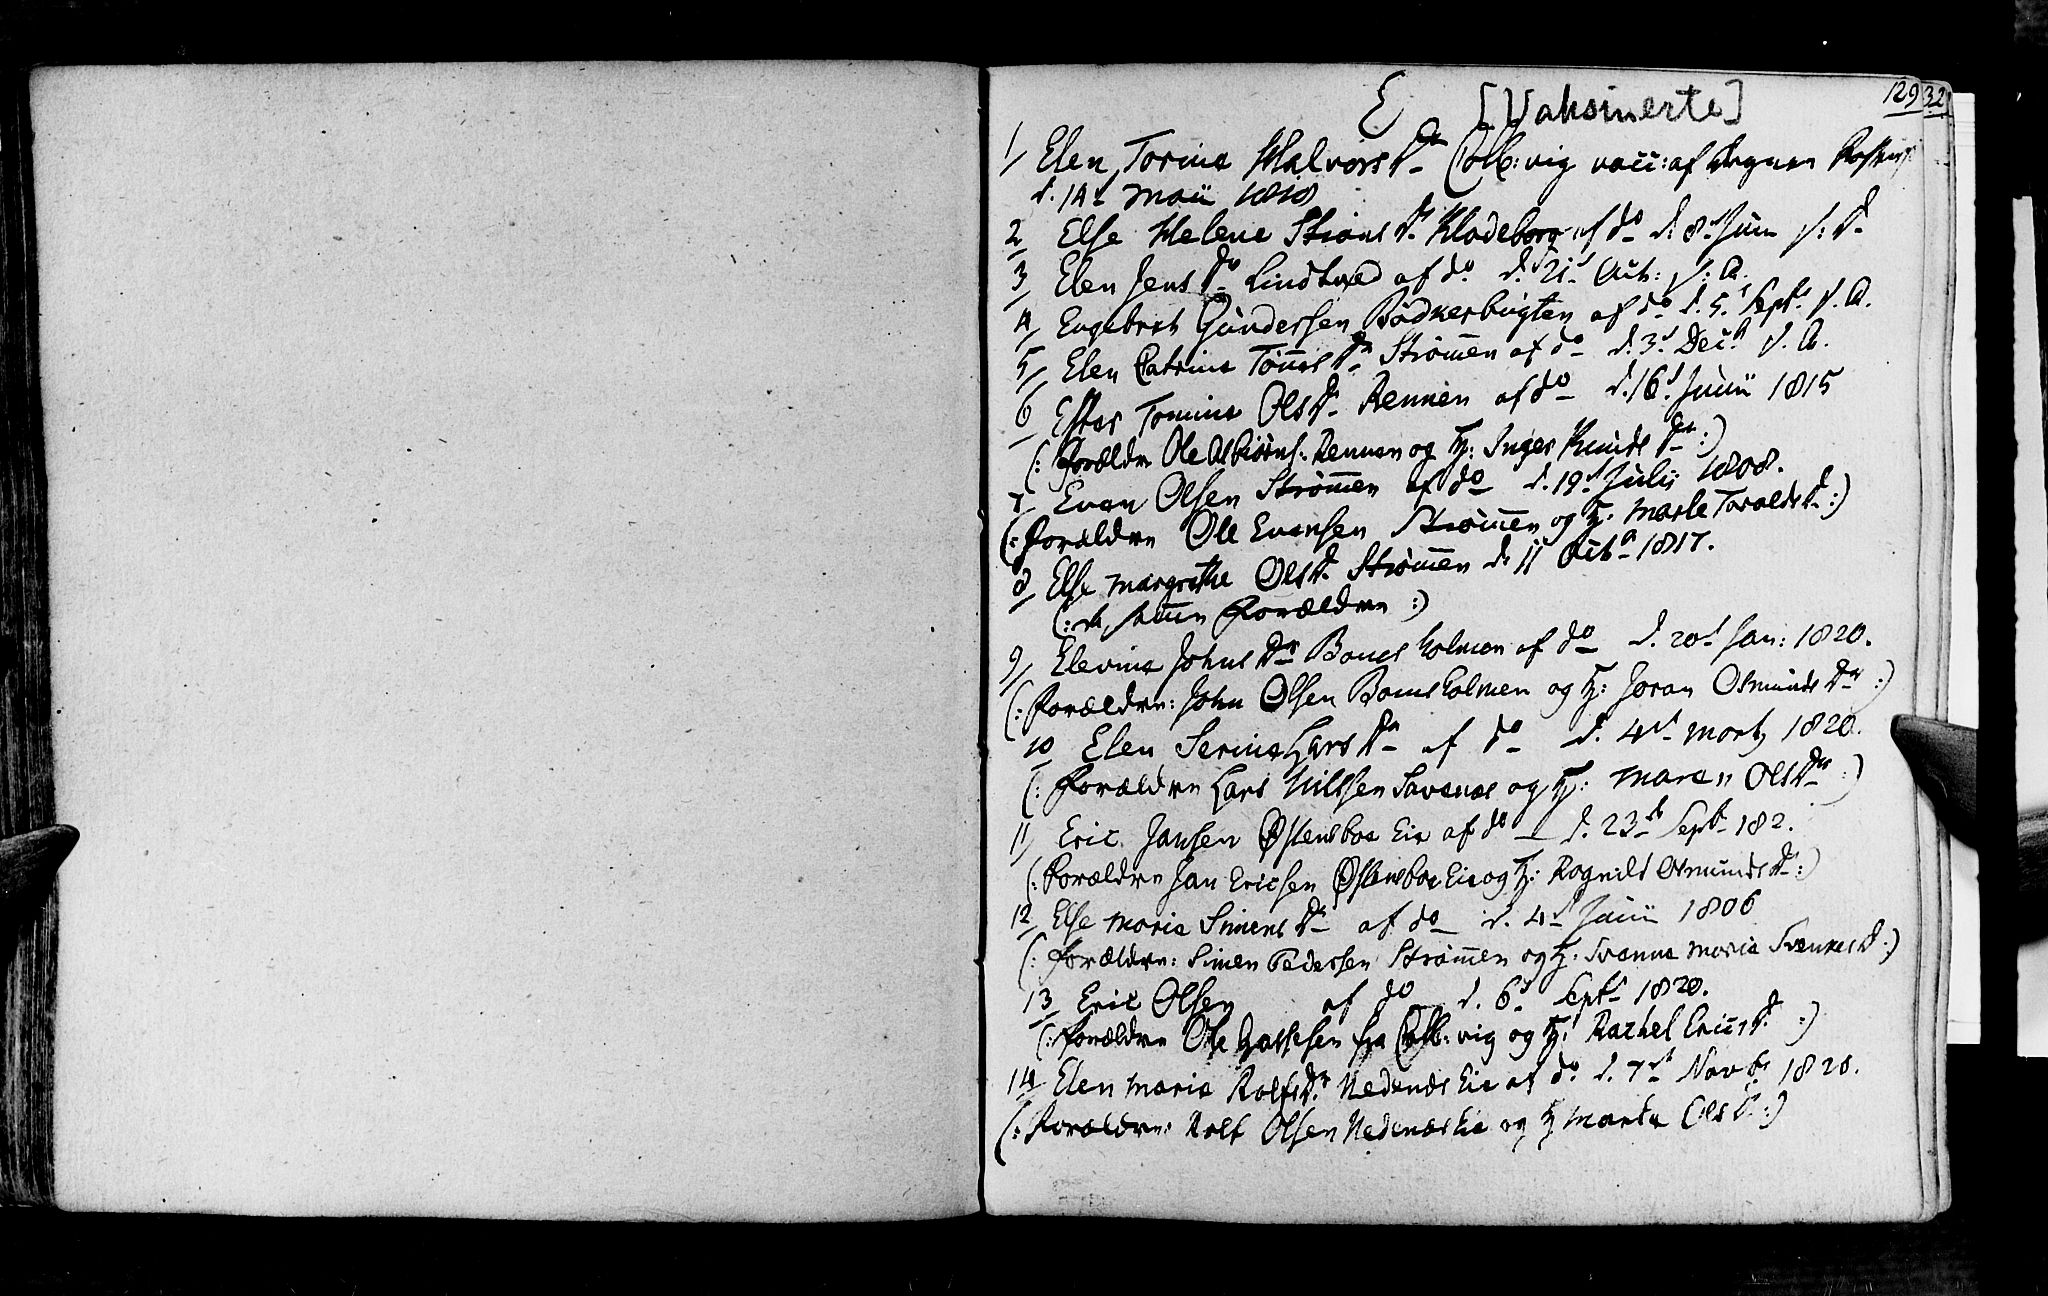 129 32
E [Vaksinerte]
1/ Elen Torine Halvors Dr Colb:vig vacc: af
d. 14d Maii 1818
2/ Else Helene Dr Kladeborg af do d. 8d Juni
3/ Elen Jens Dr Lindtved af do d. 21d Oct: s: A.
4/ Engebret Gundersen Bödkerbugten af do d. 5d Sept s. A.
5/ Elen Catrine Tönnes Dr Strömen af do d. 3d Decb s. A.
6/ Ester Tomine Ols Dr Rennen af do d. 16d Junii 1815
(: Forældre Ole Asbiörns: Rennen og H: Inger Knuds Dr :)
7 Even Olsen Strömen af do d. 19d Julij 1808.
(: Forældre Ole Evensen Strömen og H: Marte Toralds D :)
8/ Else Margrethe Ols D. Strömen d. 11 Octbr 1817.
(: de samme Forældre :)
9/ Elevine Johns Dr Bomsholmen af do d. 20d Jan: 1820.
(: Forældre: John Olsen Bomsholmen og H: Joran Osmunds Dr :)
10 Elen Serine Lars Dr af do d. 4d Martz 1820.
(: Forældre Lars Nilssen og H: Maren Ols Dr :)
11/ Eric Jansen Östensboe Eie af do d. 23d Sept 182.
(: Forældre Jan Ericsen Östensboe Eie og H: Ragnild Osmunds Dr :)
12 Else Marie Simens Dr af do d. 4d Junii 1806
(: Forældre: Simen Pedersen Strömen og H: Svenkes D :)
13 Eric Olsen af do d. 6d Sept 1820.
(: Forældre Ole fra Colb:vig og H: Rachel Erics D. :)
14 Elen Marie Rolfs Dr. Nedenæs Eie af do d. 7d Novbr 1820.
(: Forældre: Rolf Olsen Nedenæs Eie og H Marte Ols D :)